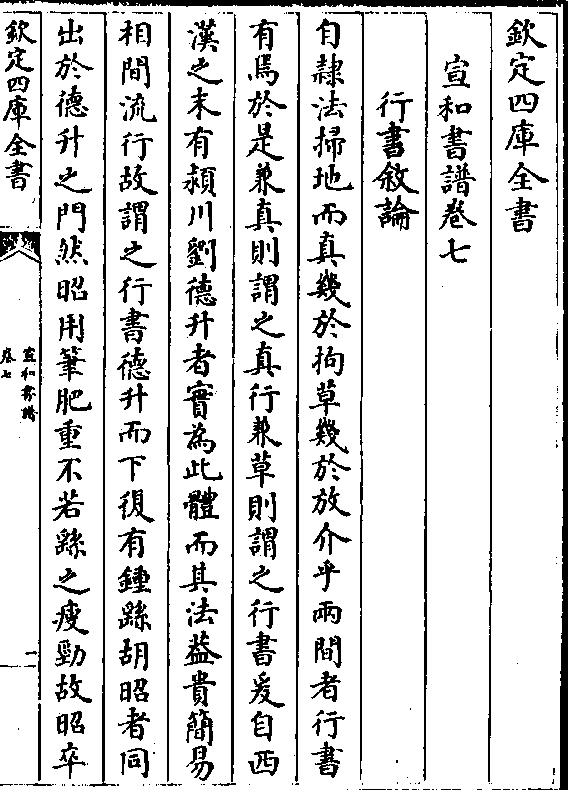 欽定四庫全書
宣和書譜卷七
行書敘論
自隸法掃地而真幾於拘草幾於放介乎兩間者行書
有焉於是兼真則謂之真行兼草則謂之行書爰自西
漢之末有潁川劉德升者實為此體而其法葢貴簡易
相間流行故謂之行書德升而下復有鍾繇胡昭者同
出於德升之門然昭用筆肥重不若繇之瘦勁故昭卒
欽定四庫全書
宣和書譜
卷七
一